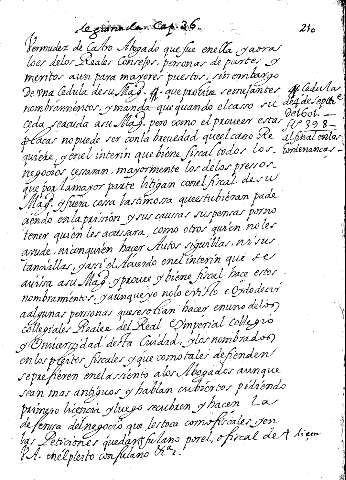 de granada. Cap. 26. 210
Vermudez de Castro Abogado que fue en ella, y aora
lo es de los Reales Consejos, personas de partes y
meritos aun para mayores puestos, sin embargo
de una Cedula de su Mag. que prohibe semejantes
nombramientos, y manda que quando el caso su
ceda se acuda a su Mag. pero como el proveer estas
plaças no puede ser con la brevedad que el caso Re
quiere, y en el interin que ai fiscal todos los
negocios cesarian, mayormente los de los presos
que por la mayor parte litigan con el fiscal de su
Mag. y fuera cosa lastimosa que estubieran pade
ciendo en la prision, y sus causas suspensas por no
tener quien les acusara, como otros quien no les
ayude, ni an quien hacer Autos sigurllas, ni sus
tanciallas, y assi el Acuerdo en el interin que se
avisa a su Mag. y provee y viene fiscal hace estos
nombramientos, y aunque yo no lo e visto e oydo decir
a algunas personas que se solian hacer en uno de los
collegiales Reales del Real e Imperial collegio
y Universidad desta Ciudad, y los nombrados
en los pleitos fiscales y que como tales defienden
se prefieren en el asiento a los Abogados aunque
sean mas antiguos, y hablan cubiertos pidiendo
primero licencia y luego se cubren, y hacen las
defensas del negocio que les toca como fiscales, y en
las Peticiones quedan fulano por el oficio fiscal de
V.A. en el pleito con fulano &c.
Cedula
de 4 de Septe
de 1601.
fl. 298
al final en las
ordenancas
dicen